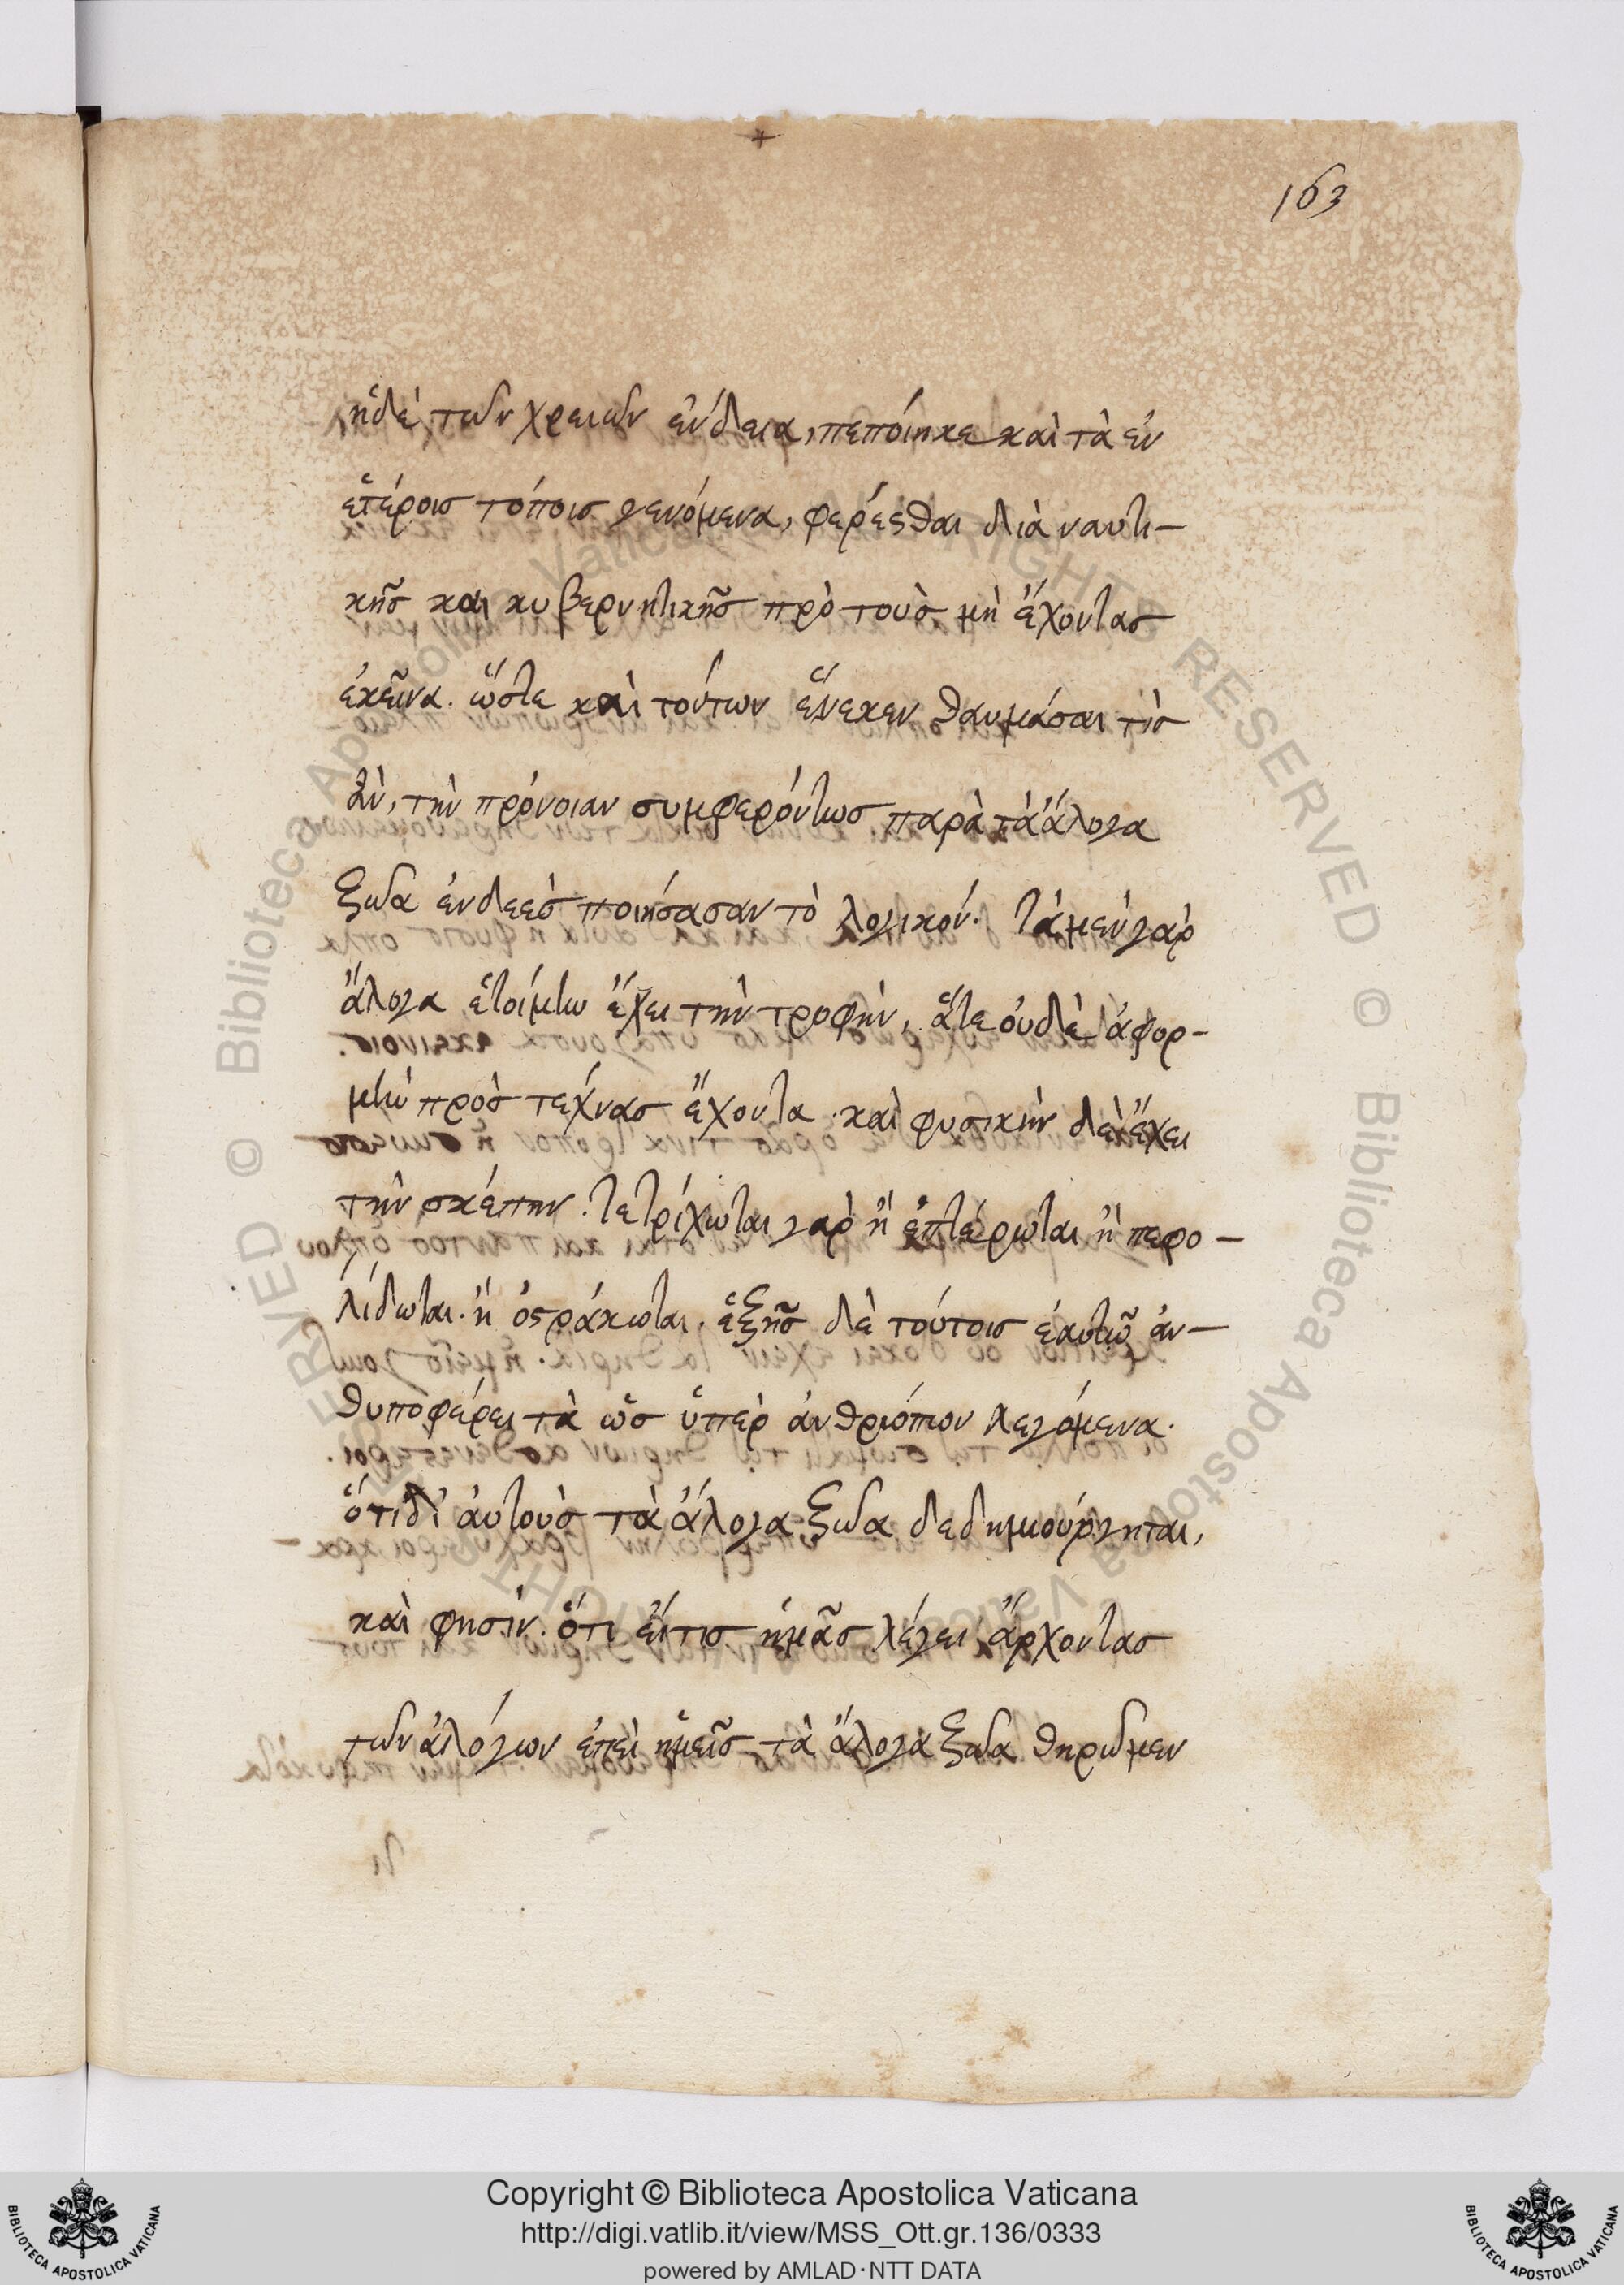 +
163
ἡ δὲ τῶν χρειῶν ἔνδεια, πεποίηκε καὶ τὰ ἐν
ἑτέροις τόποις γενόμενα, φέρεσθαι διὰ ναυτι-
κῆς και κυβερνητικῆς πρὸ τοὺς μὴ ἔχοντας
ἐκεῖνα. ὥστε καὶ τούτων ἕνεκεν θαυμάσαι τὶς
ἂν, τὴν πρόνοιαν συμφερόντως παρὰ τὰ ἄλογα
ζῶα ἐνδεὲς ποιήσασαν τὸ λογικόν. τὰ μὲν γὰρ
ἄλογα ἑτοίμην ἔχει τὴν τροφὴν, ἅτε οὐδὲ ἀφορ-
μὴν πρὸς τέχνας ἔχοντα. καὶ φυσικὴν δὲ ἔχει
τὴν σκέπην. τετρίχωται γὰρ ἢ ἐπτέρωται ἢ πεφο-
λίδωται. ἢ ὀστράκωται. ἑξῆς δὲ τούτοις ἑαυτῷ ἀν-
θυποφέρει τὰ ὡς ὑπὲρ ἀνθρώπων λεγόμενα.
ὅτι δι ἀυτοὺς τὰ ἄλογα ζῶα δεδημιούργηται,
καὶ φησὶν. ὅτι ἐί τις ἡμᾶς λέγει ἄρχοντας
τῶν ἀλόγων ἐπεὶ ἡμεῖς τὰ ἄλογα ζῶα θηρῶμεν
© Biblioteca Apostolica Vaticana RIGHTS RESERVED © Biblioteca Apostolica Vaticana RIGHTS RESERVED
Copyright © Biblioteca Apostolica Vaticana
http://digi.vatlib.it/view/MSS_Ott.gr.136/0333
powered by AMLAD·NTT DATA
BIBLIOTECA APOSTOLICA VATICANA
BIBLIOTECA APOSTOLICA VATICANA